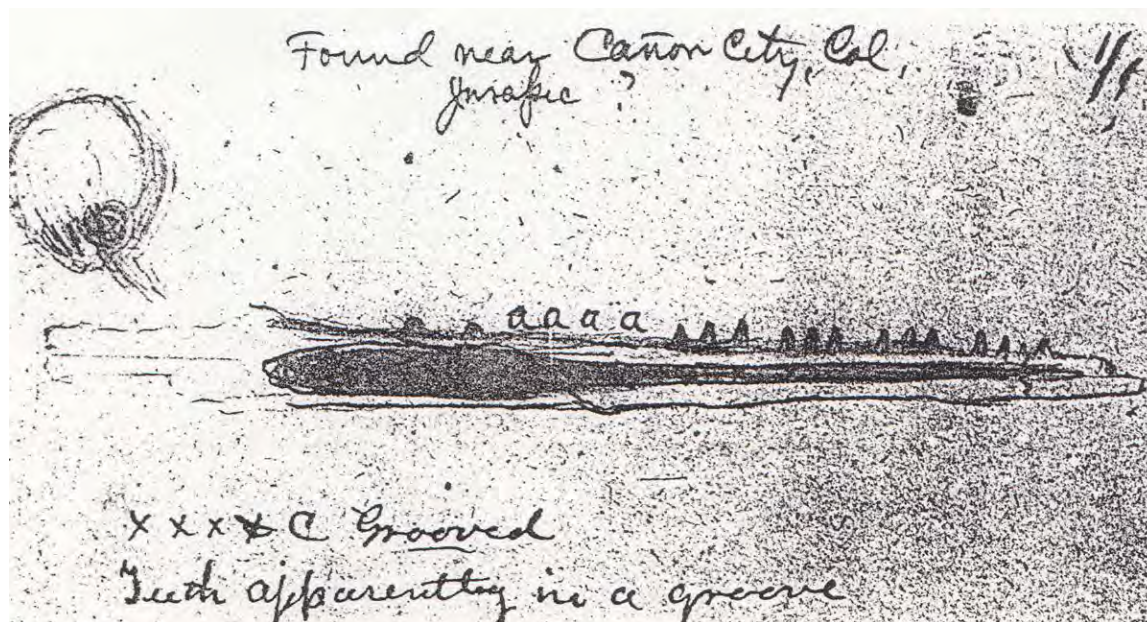 Found near Cañon City, Col,
Jurassic ?
1/1
a a a a
x x x x C Grooved
Teeth apparently in a groove